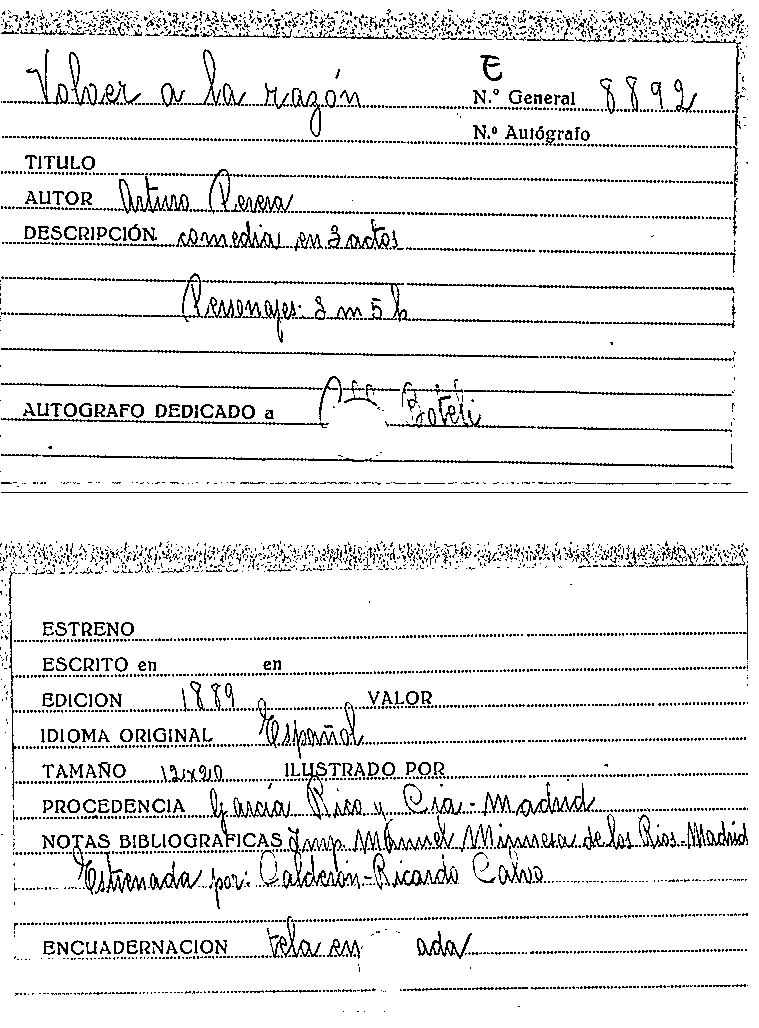 E
Volver a la razón N.º General 8892
N.º Autógrafo
TITULO
AUTOR Arturo Perera
DESCRIPCIÓN comedia en 3 actos
Personajes: 3 m 5 h
AUTOGRAFO DEDICADO a
ESTRENO
ESCRITO en en
EDICION 1889 VALOR
IDIOMA ORIGINAL Español
TAMAÑO 12x20 ILUSTRADO POR
PROCEDENCIA García Rico y Cía - Madrid
NOTAS BIBLIOGRAFICAS Imp. Manuel Minuesa de los Rios - Madrid
Estrenada por: Calderón - Ricardo Calvo
ENCUADERNACION tela en